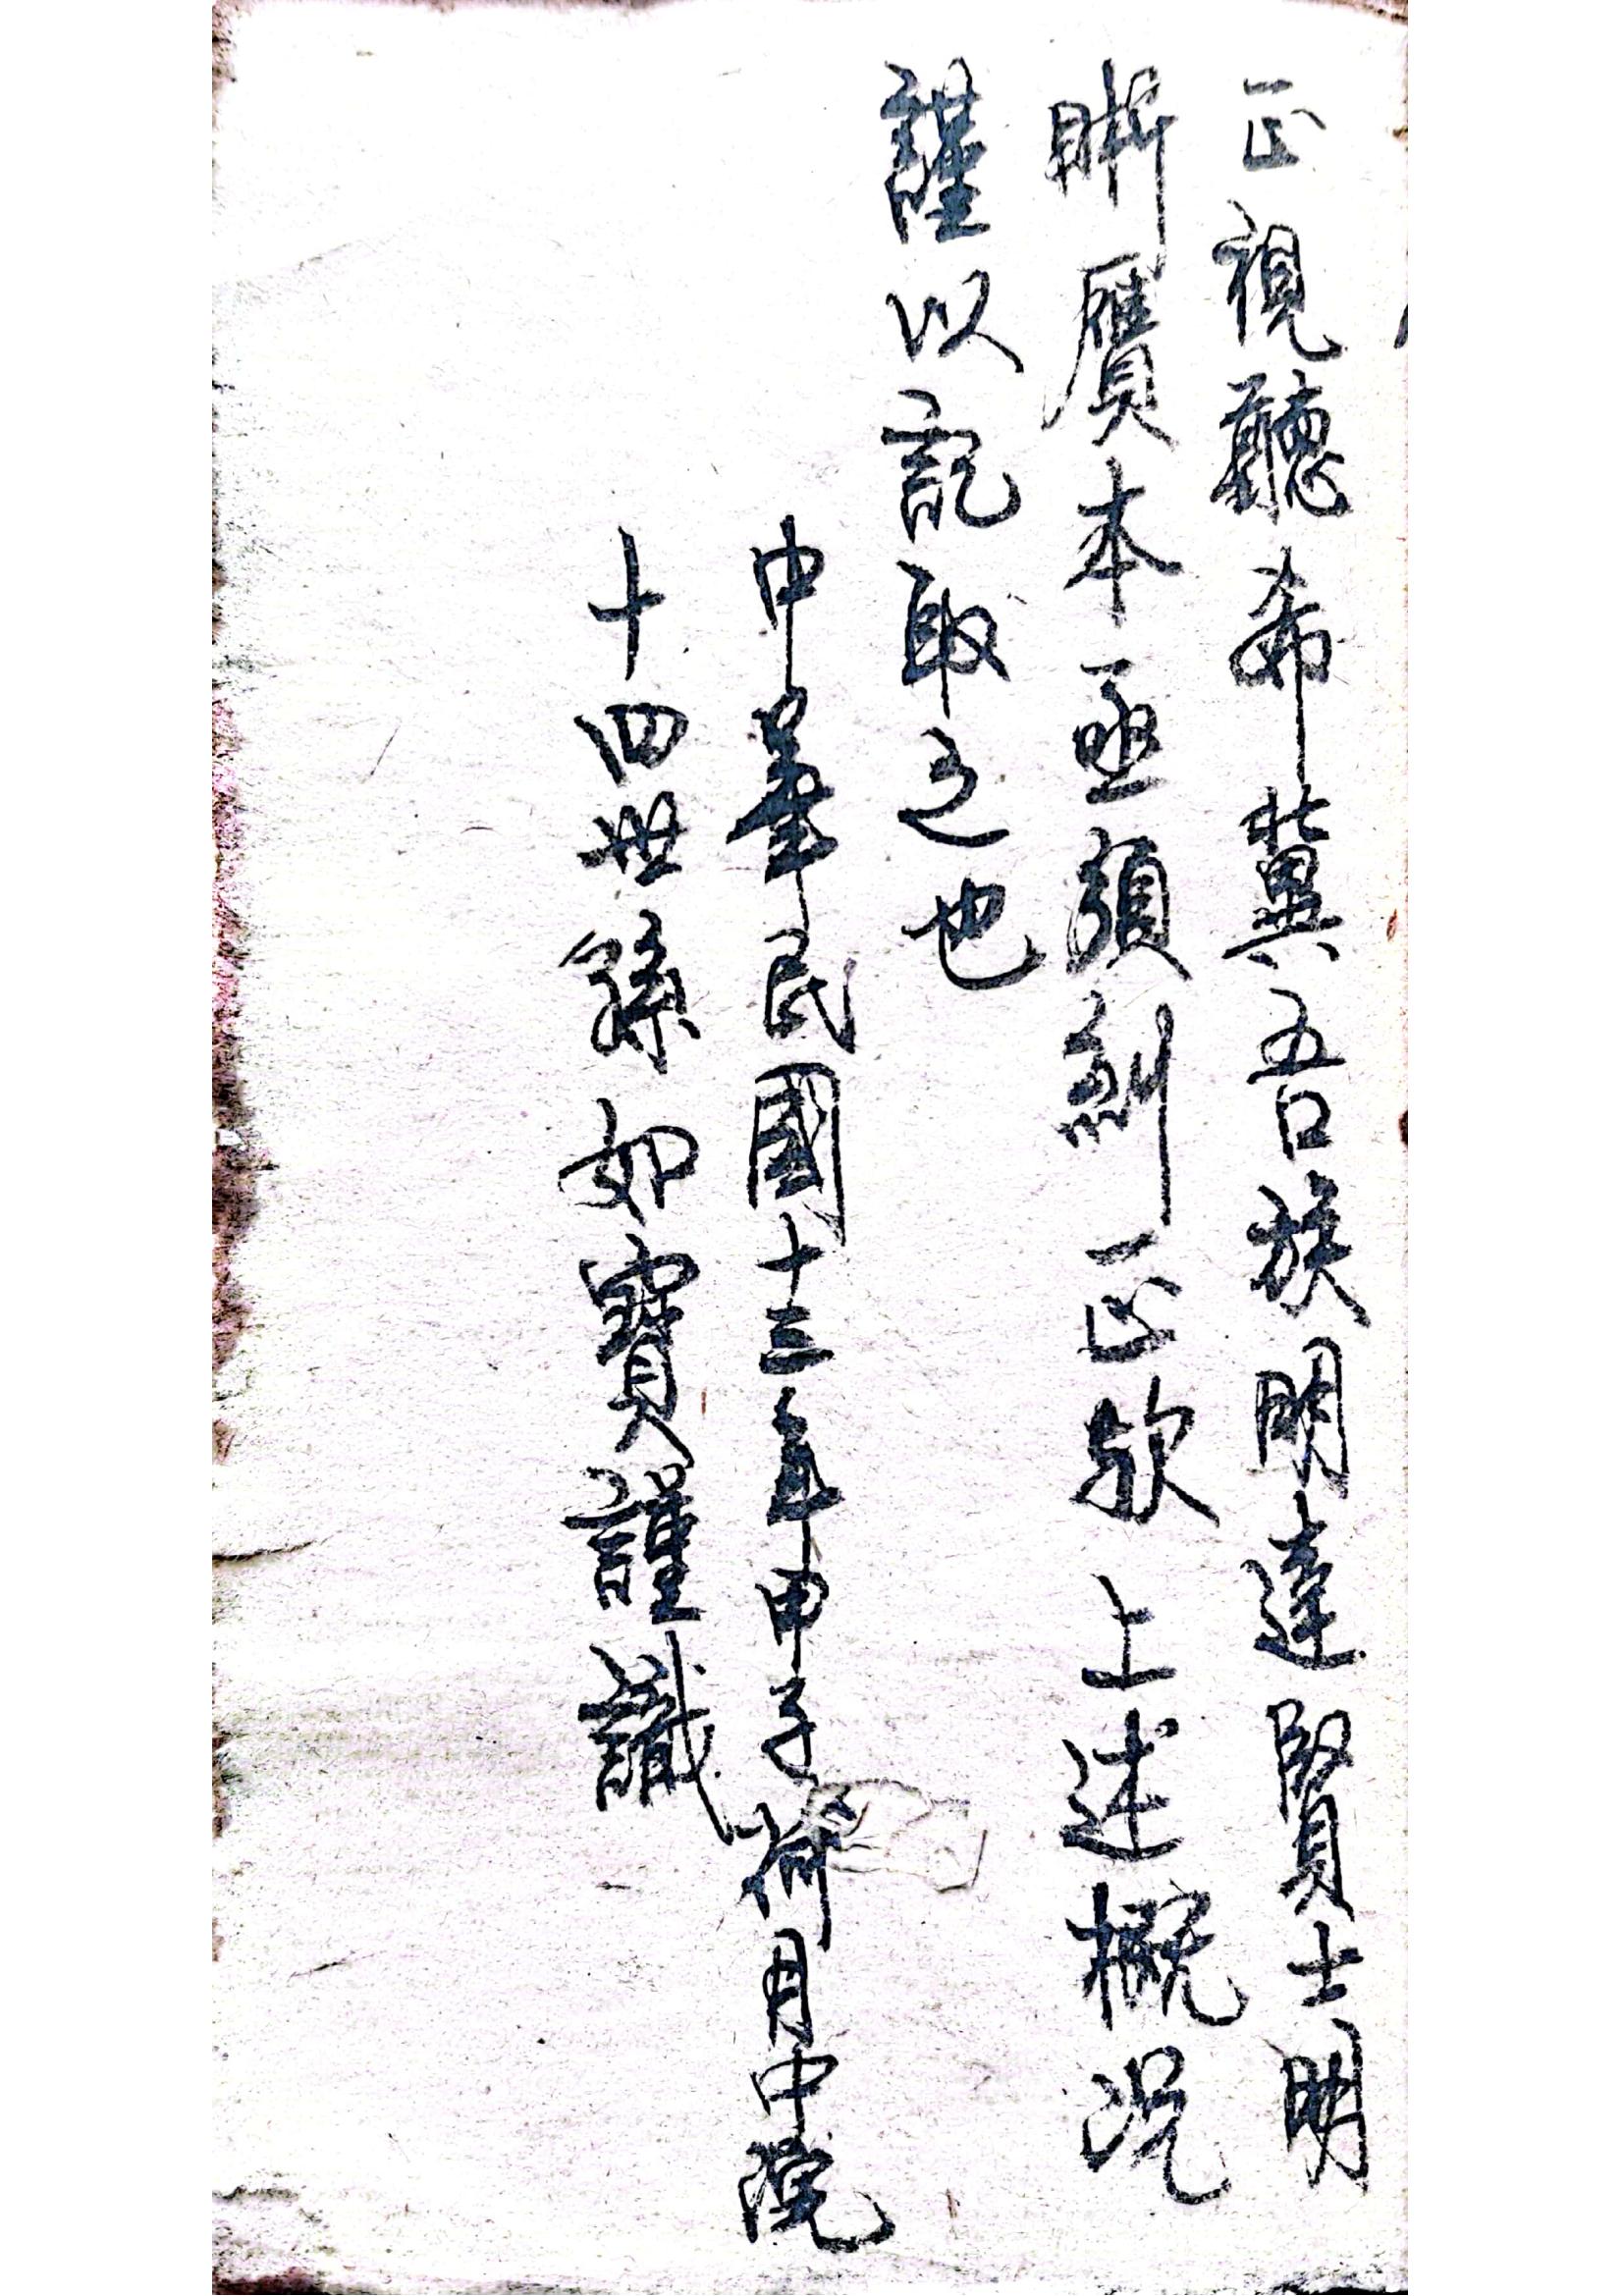 正視聽希冀吾族明達賢士明
晰贋本亟須糾正欤上述概况
謹以記取之也
中華民國十三年甲子荷月中浣
十四世孫如寶謹識